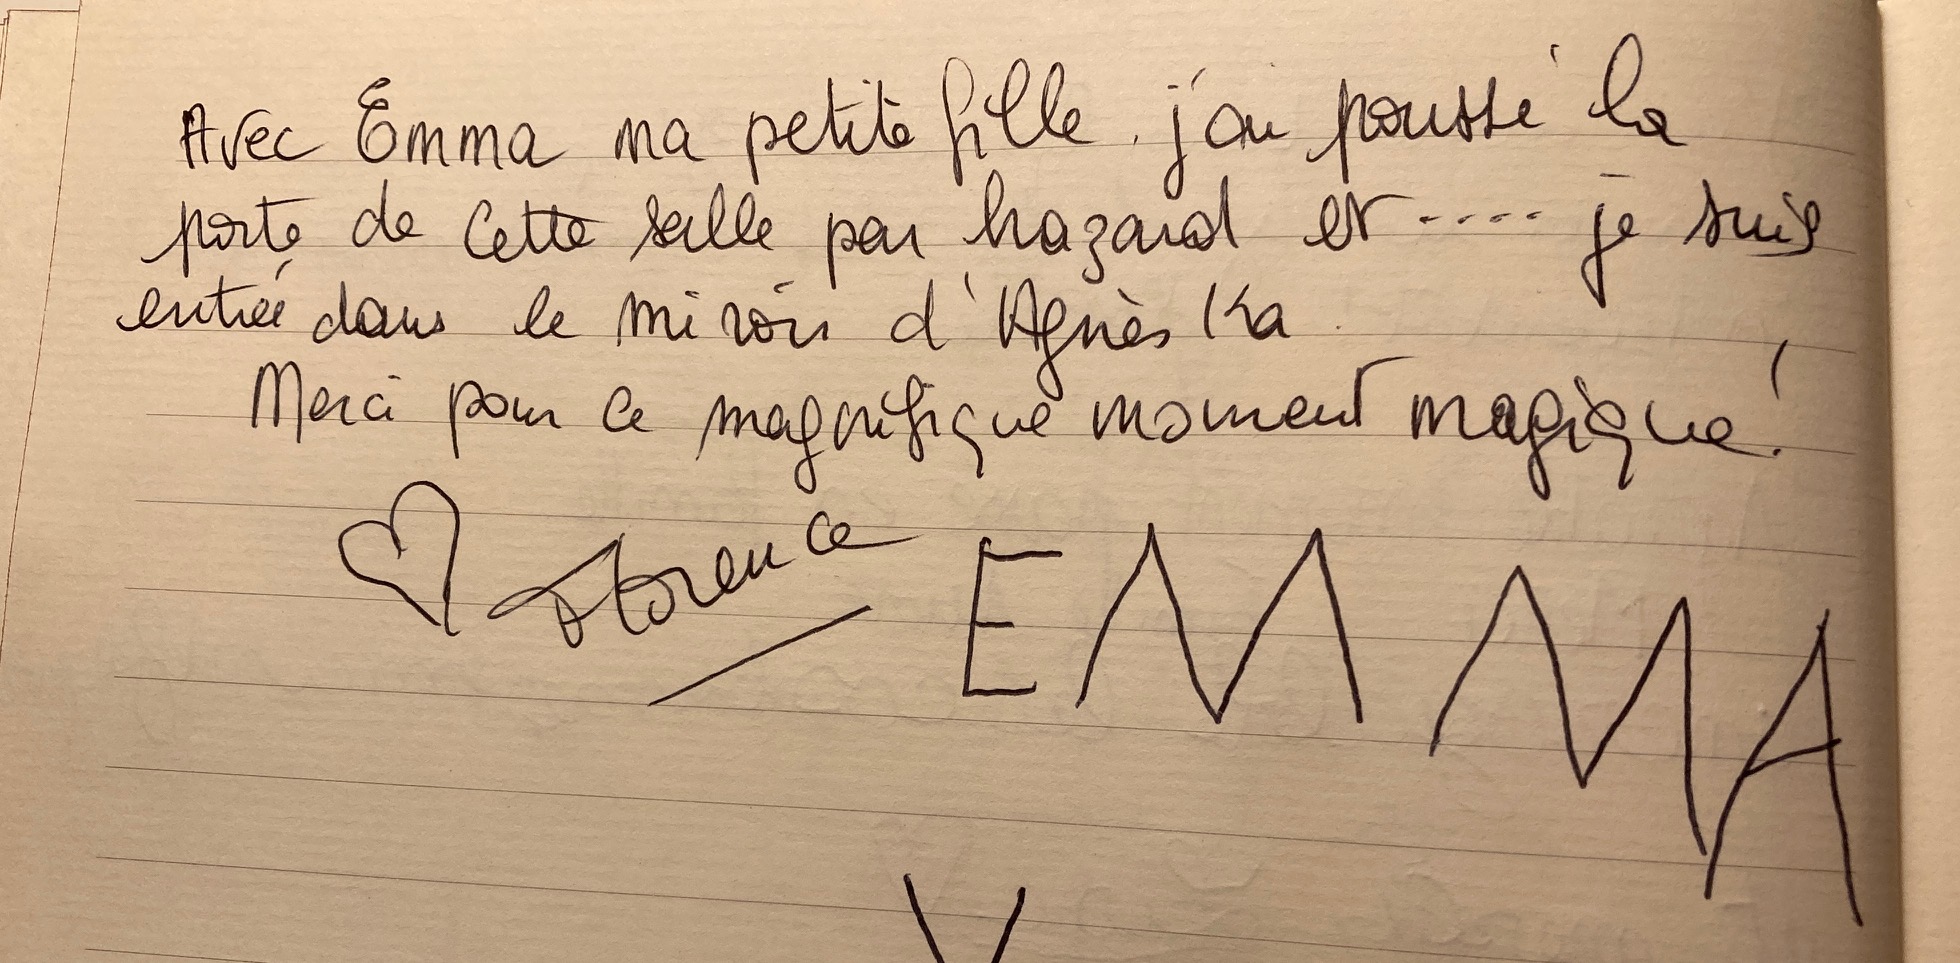 Avec Emma ma petite fille. j'ai poussé la
porte de cette salle par hazard et ---- je suis
entrée dans le miroir d'Agnès Ka.
Merci pour ce magnifique moment magique!
Florence
EMMA